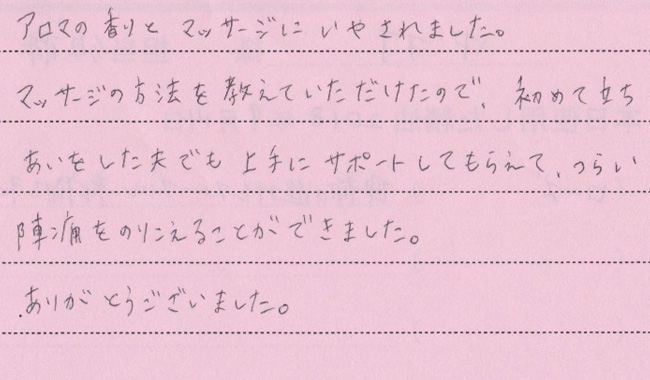 アロマの香りと マッサージに いやされました。
マッサージの方法を教えていただけたので、初めて立ち
あいをした夫でも 上手に サポートしてもらえて、つらい
陣痛をのりこえることができました。
ありがとうございました。